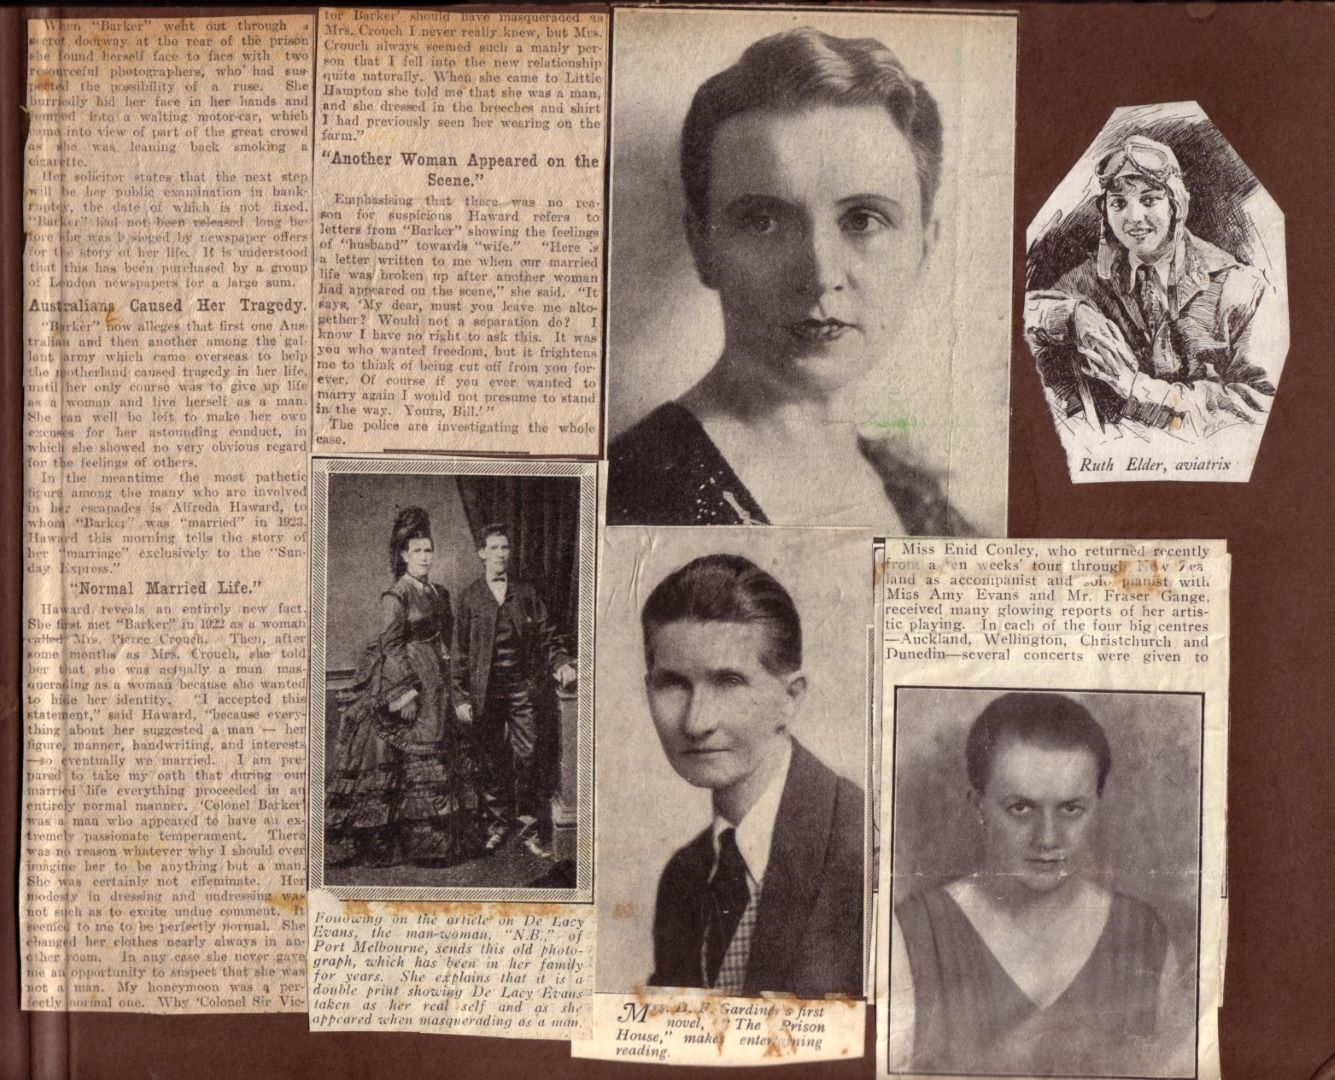 When "Barker" went out through a
secret doorway at the rear of the prison
she found herself face to face with two
resourceful photographers, who had sus-
pected the possibility of a ruse. She
hurriedly hid her face in her hands and
jumped into a waiting motor-car, which
came into view of part of the great crowd
as she was leaning back smoking a
cigarette.
Her solicitor states that the next step
will be her public examination in bank-
ruptcy, the date of which is not fixed.
"Barker" had not been released long be-
fore she was besieged by newspaper offers
for the story of her life. It is understood
that this has been purchased by a group
of London newspapers for a large sum.
Australians Caused Her Tragedy.
"Barker" now alleges that first one Aus-
tralian and then another among the gal-
lant army which came overseas to help
the motherland caused tragedy in her life,
until her only course was to give up life
as a woman and live herself as a man.
She can well be left to make her own
excuses for her astounding conduct, in
which she showed no very obvious regard
for the feelings of others.
In the meantime the most pathetic
figure among the many who are involved
in her escapades is Alfreda Haward, to
whom "Barker" was "married" in 1923.
Haward this morning tells the story of
her "marriage" exclusively to the "Sun-
day Express."
"Normal Married Life."
Haward reveals an entirely new fact.
She first met "Barker" in 1922 as a woman
called Mrs. Pierce Crouch. Then, after
some months as Mrs. Crouch, she told
her that she was actually a man mas-
querading as a woman because she wanted
to hide her identity. "I accepted this
statement," said Haward, "because every-
thing about her suggested a man — her
figure, manner, handwriting, and interests
—so eventually we married. I am pre-
pared to take my oath that during our
married life everything proceeded in an
entirely normal manner. 'Colonel Barker'
was a man who appeared to have an ex-
tremely passionate temperament. There
was no reason whatever why I should ever
imagine her to be anything but a man.
She was certainly not effeminate. Her
modesty in dressing and undressing was
not such as to excite undue comment. It
seemed to me to be perfectly normal. She
changed her clothes nearly always in an-
other room. In any case she never gave
me an opportunity to suspect that she was
not a man. My honeymoon was a per-
fectly normal one. Why 'Colonel Sir Vic-
tor Barker' should have masqueraded as
Mrs. Crouch I never really knew, but Mrs.
Crouch always seemed such a manly per-
son that I fell into the new relationship
quite naturally. When she came to Little
Hampton she told me that she was a man,
and she dressed in the breeches and shirt
I had previously seen her wearing on the
farm."
"Another Woman Appeared on the
Scene."
Emphasising that there was no rea-
son for suspicions Haward refers to
letters from "Barker" showing the feelings
of "husband" towards "wife." "Here is
a letter written to me when our married
life was broken up after another woman
had appeared on the scene," she said. "It
says, 'My dear, must you leave me alto-
gether? Would not a separation do? I
know I have no right to ask this. It was
you who wanted freedom, but it frightens
me to think of being cut off from you for-
ever. Of course if you ever wanted to
marry again I would not presume to stand
in the way. Yours, Bill.'"
The police are investigating the whole
case.
Following on the article on De Lacy
Evans, the man-woman, "N.B.," of
Port Melbourne, sends this old photo-
graph, which has been in her family
for years. She explains that it is a
double print showing De Lacy Evans
taken as her real self and as she
appeared when masquerading as a man.
Mrs. D. F. Gardiner's first
novel, "The Prison
House," makes entertaining
reading.
Ruth Elder, aviatrix
Miss Enid Conley, who returned recently
from a ten weeks' tour through New Zea
land as accompanist and solo pianist with
Miss Amy Evans and Mr. Fraser Gange,
received many glowing reports of her artis-
tic playing. In each of the four big centres
—Auckland, Wellington, Christchurch and
Dunedin—several concerts were given to